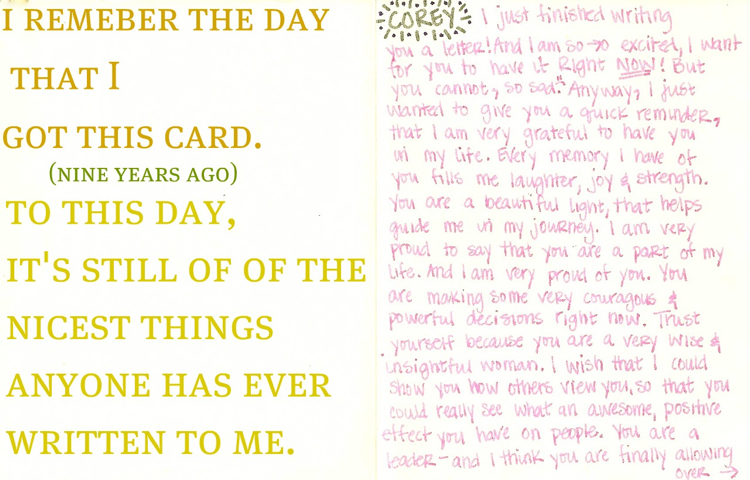 I REMEBER THE DAY
THAT I
GOT THIS CARD.
(NINE YEARS AGO)
TO THIS DAY,
IT'S STILL OF OF THE
NICEST THINGS
ANYONE HAS EVER
WRITTEN TO ME.
COREY I just finished writing
you a letter! And I am so → excited, I want
for you to have it Right NOW! But
you cannot, so sad. Anyway, I just
wanted to give you a quick reminder,
that I am very grateful to have you
in my life. Every memory I have of
you fills me laughter, joy & strength.
You are a beautiful light, that helps
guide me in my journey. I am very
proud to say that you are a part of my
life. And I am very proud of you. You
are making some very couragous &
powerful decisions right now. Trust
yourself because you are a very wise &
insightful woman. I wish that I could
show you how others view you, so that you
could really see what an awesome, positive
effect you have on people. You are a
leader - and I think you are finally allowing
over →